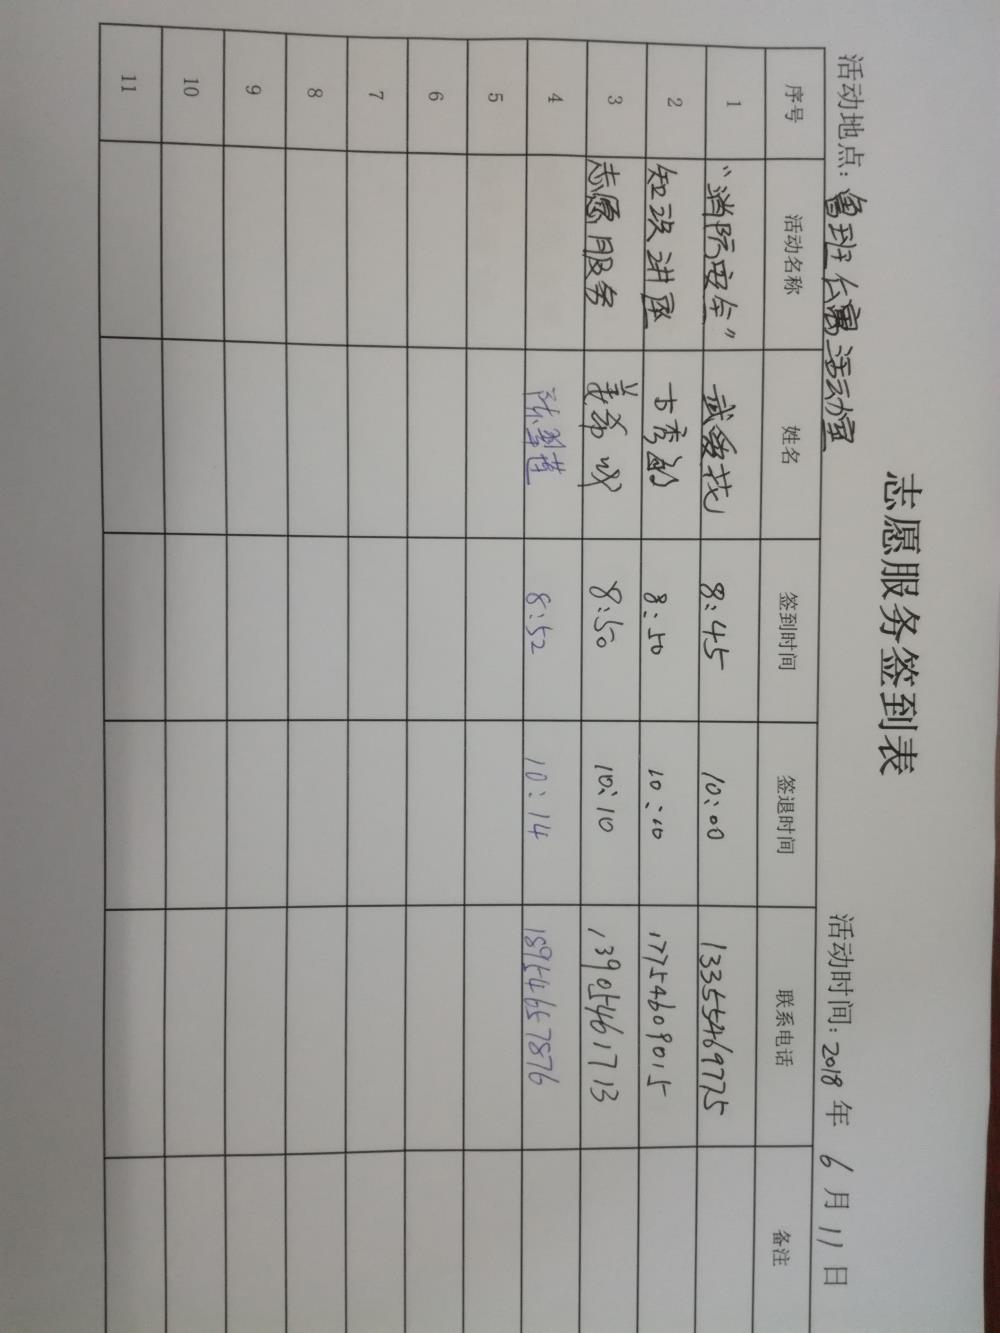 志愿服务签到表
活动地点: 鲁班公寓活动室 活动时间: 2018 年 6 月 11 日
序号 活动名称 姓名 签到时间 签退时间 联系电话 备注
1 “消防安全” 武爱我 8:45 10:00 13355469775
2 知识讲座 8:50 10:10 17754609015
3 志愿服务 8:50 10:10 13905461713
4 8:52 10:14 18954657876
5
6
7
8
9
10
11